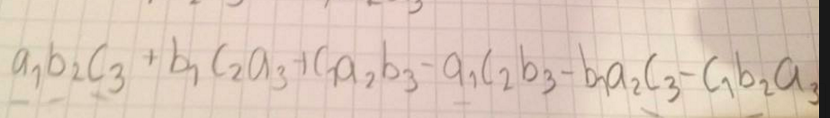 a₁b₂c₃ + b₁c₂a₃ + c₁a₂b₃ - a₁c₂b₃ - b₁a₂c₃ - c₁b₂a₃